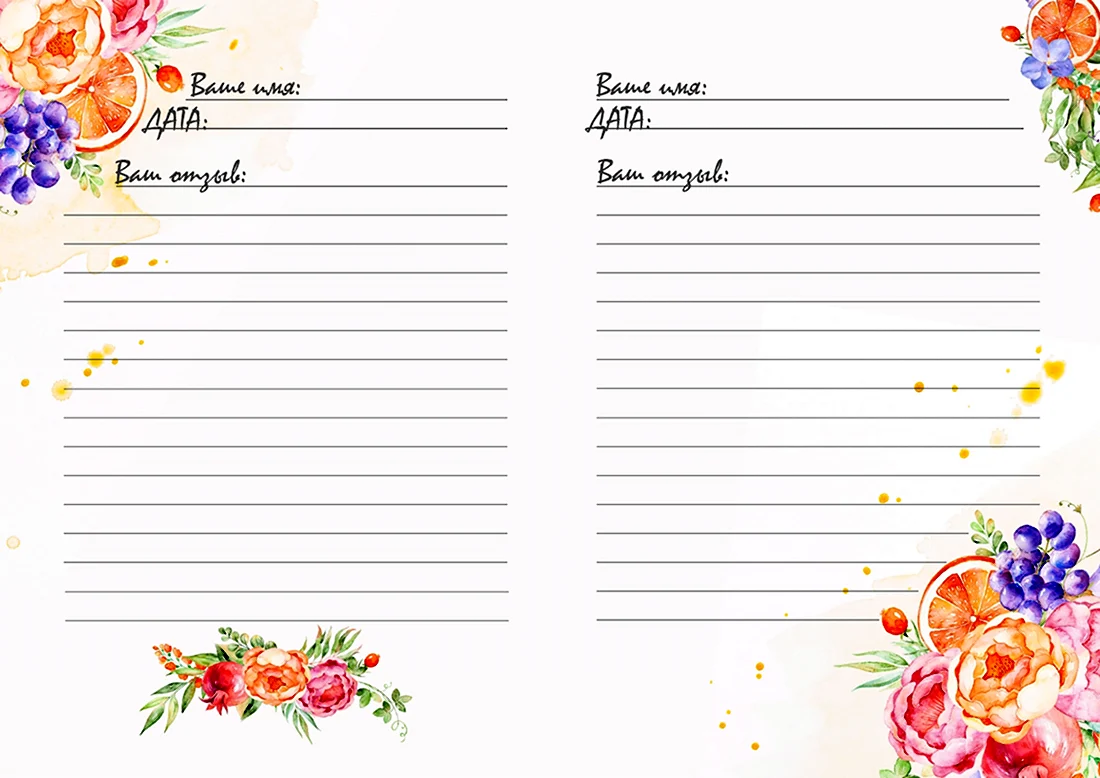 Ваше имя:
ДАТА:
Ваш отзыв:
Ваше имя:
ДАТА:
Ваш отзыв: